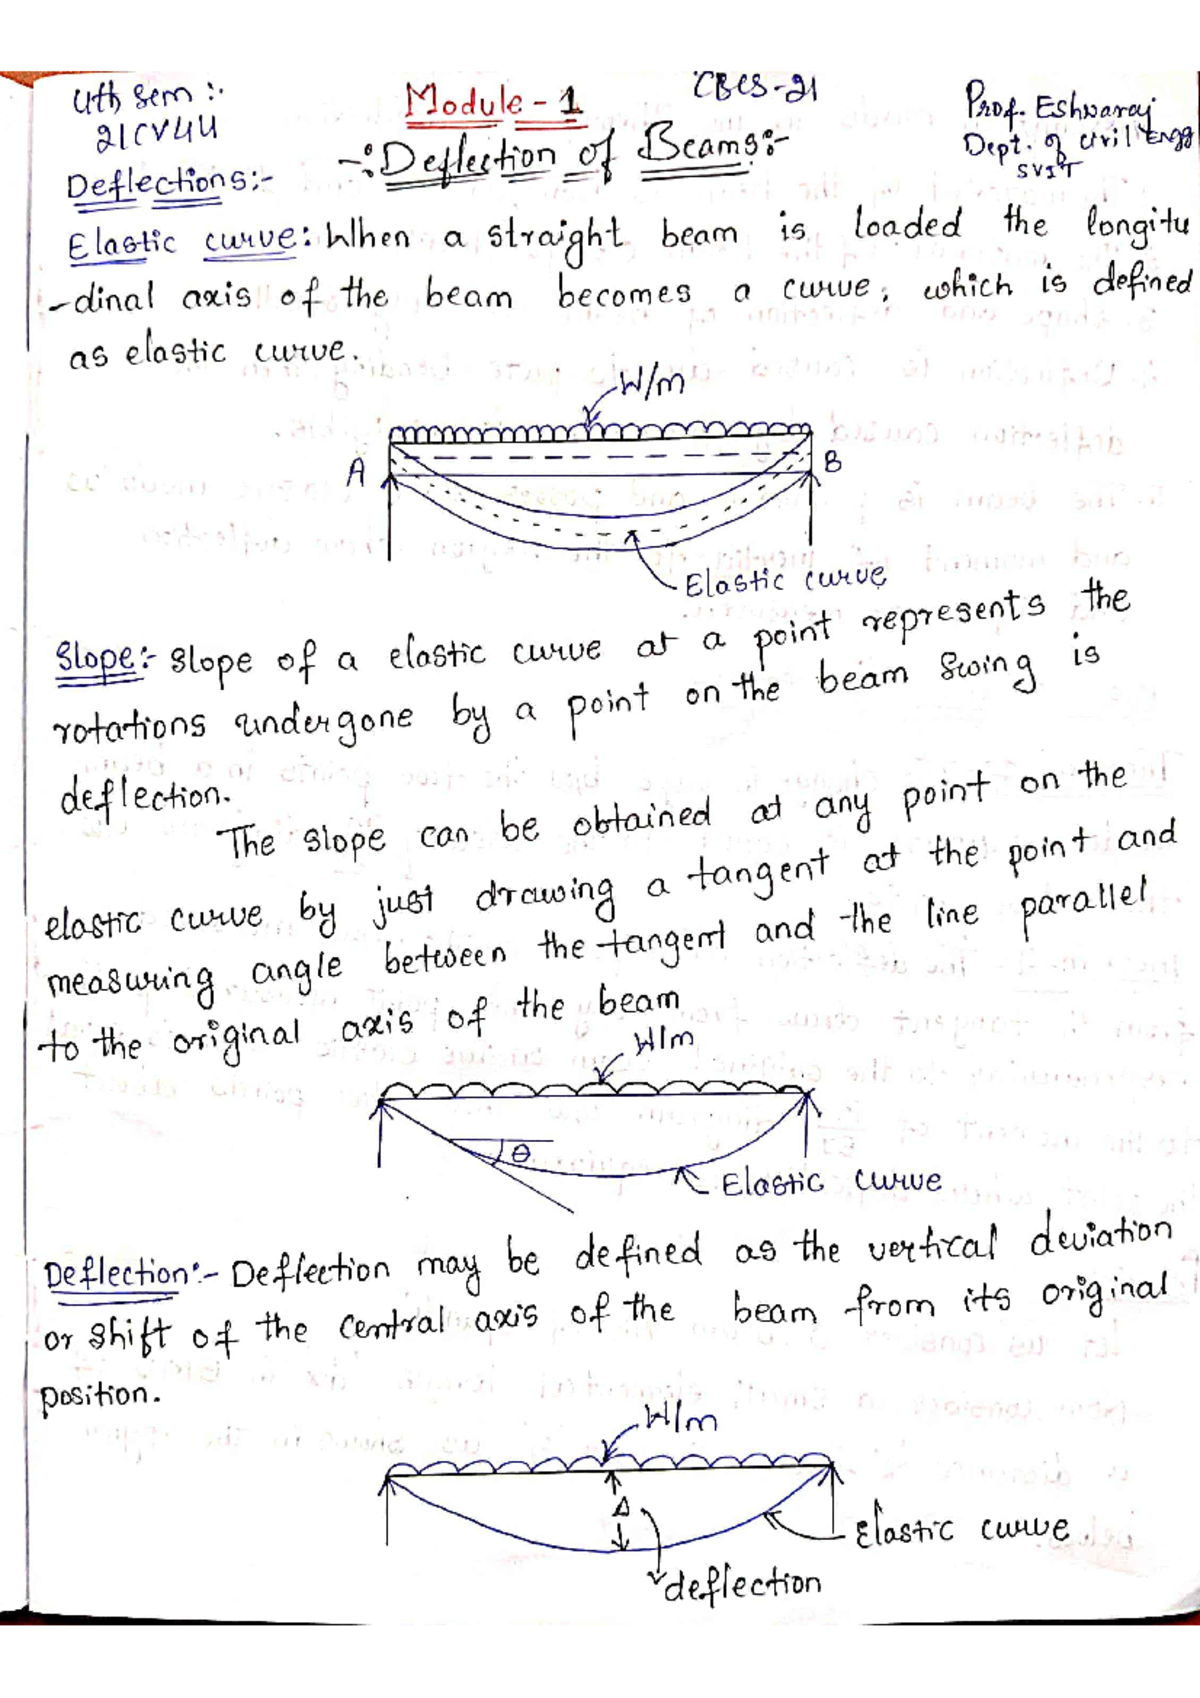 4th Sem :-
21CV44
Module - 1
CBCS-21
Prof. Eshwaraj
Dept. of Civil Engg
SVIT
-: Deflection of Beams:-
Deflections:-
Elastic curve: When a straight beam is loaded the longitu
-dinal axis of the beam becomes a curve, which is defined
as elastic curve.
W/m
A
B
Elastic curve
Slope:- Slope of a elastic curve at a point represents the
rotations undergone by a point on the beam swing is
deflection.
The slope can be obtained at any point on the
elastic curve by just drawing a tangent at the point and
measuring angle between the tangent and the line parallel
to the original axis of the beam
W/m
θ
Elastic curve
Deflection:- Deflection may be defined as the vertical deviation
or shift of the central axis of the beam from its original
position.
W/m
Δ
Elastic curve
deflection